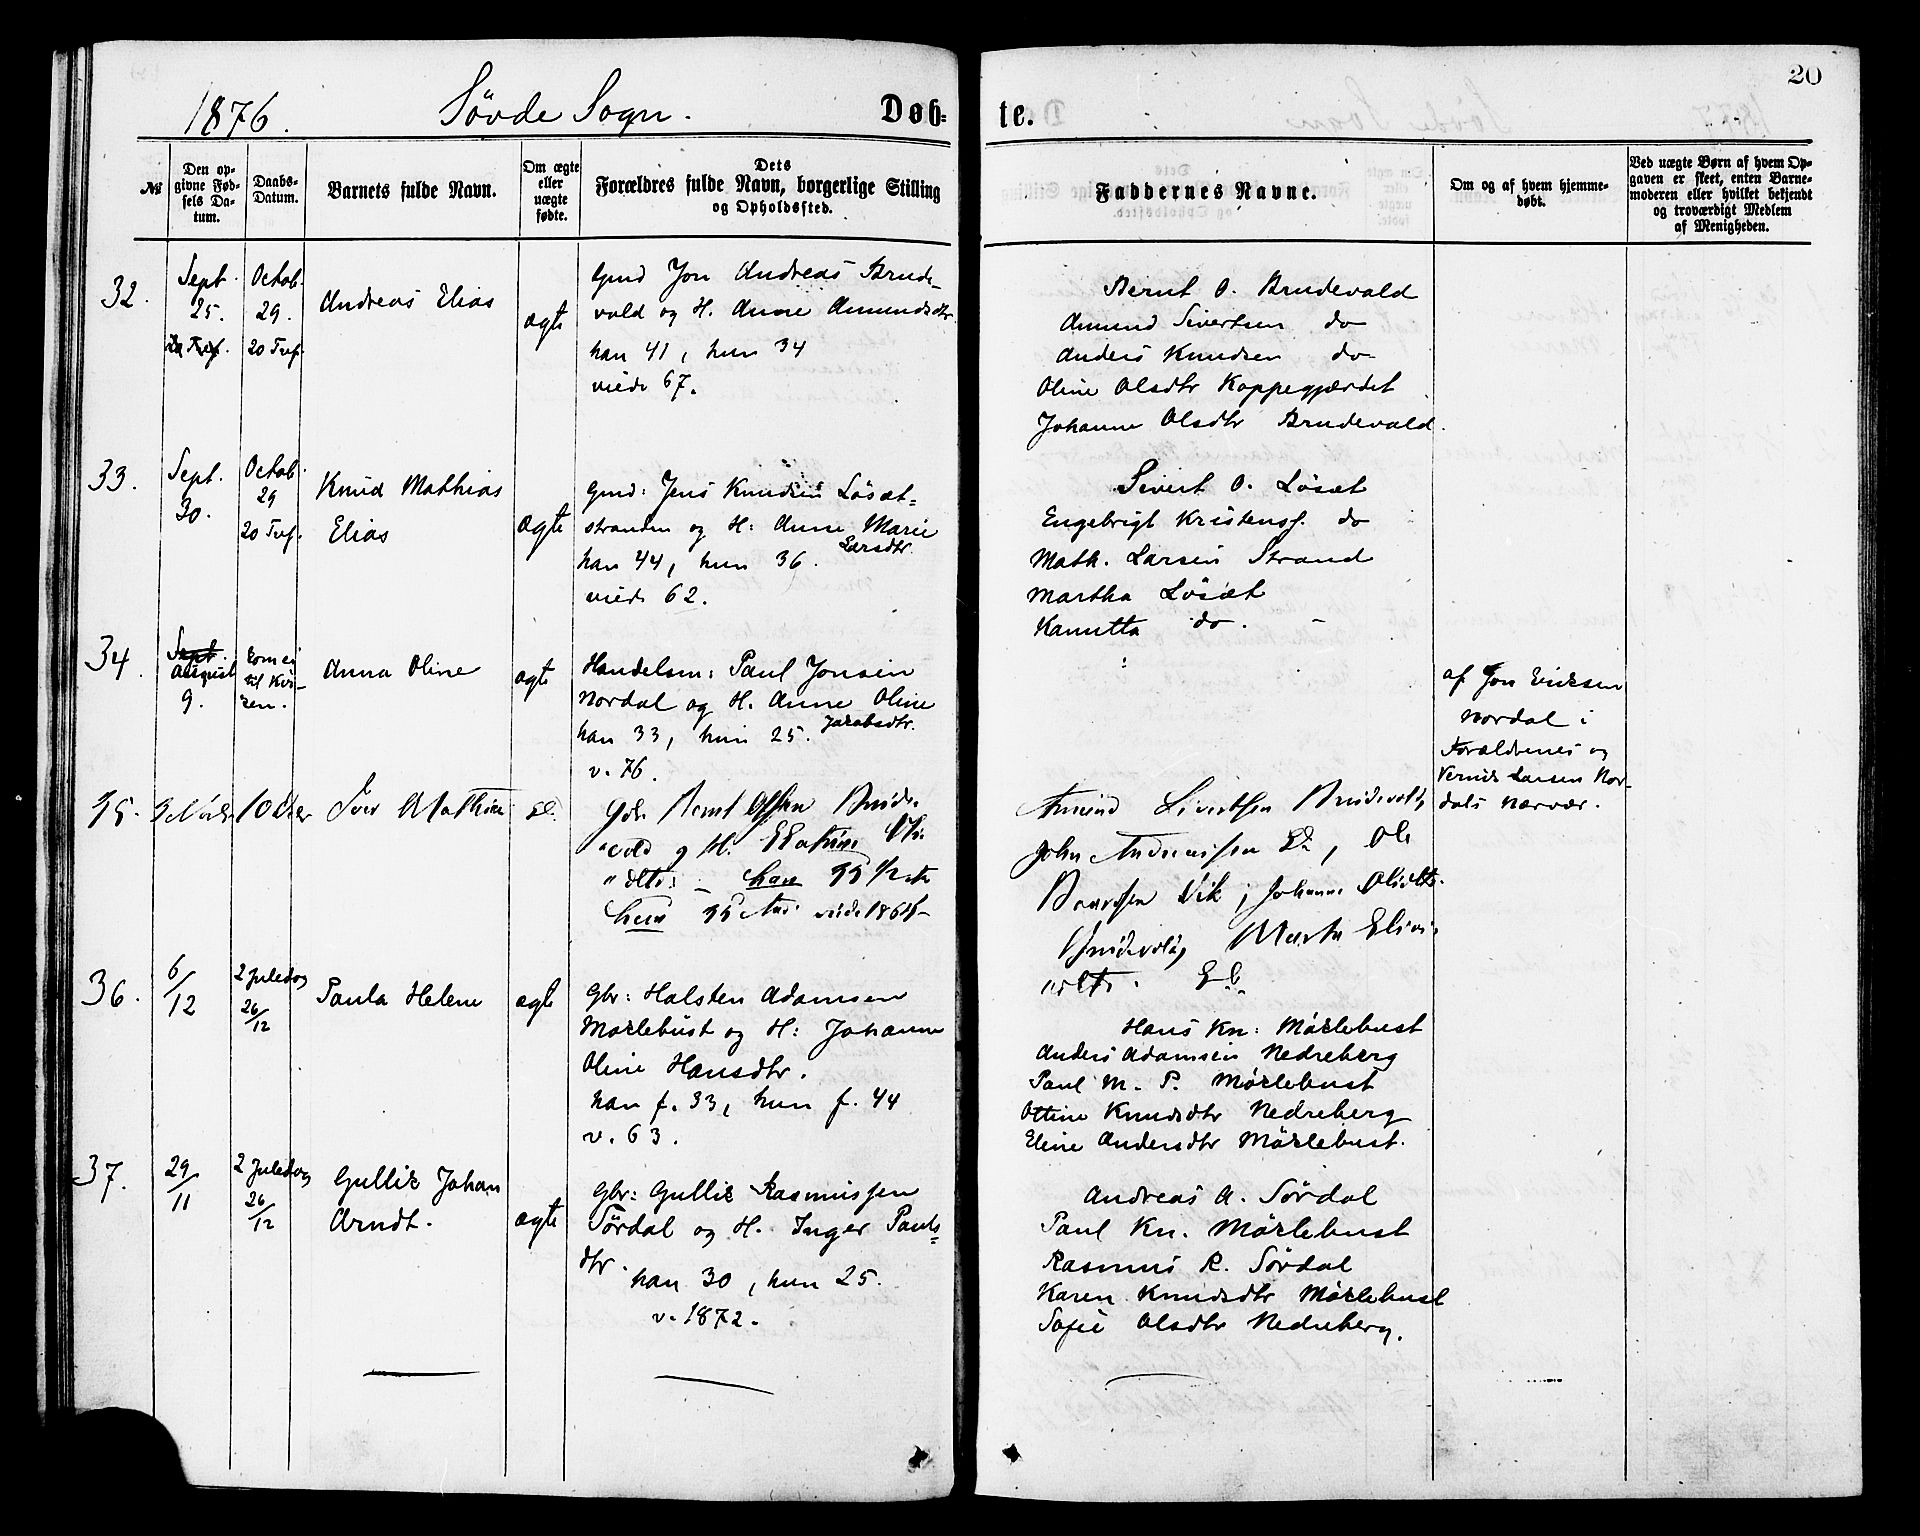 20
1876. Søvde Sogn. Døb- te.
№
Den op-
givne Fød-
sels Da-
tum.
Daabs-
Datum.
Barnets fulde Navn.
Om ægte
eller
uægte
fødte.
Dets
Forældres fulde Navn, borgerlige Stilling
og Opholdssted.
Faddernes Navne.
Om og af hvem hjemme-
døbt.
Ved uægte Børn af hvem Op-
gaven er skeet, enten Barne-
moderen eller hvilket bekjendt
og troværdigt Medlem
af Menigheden.
32.
Sept.
25.
Octob.
29.
20 Tref.
Andreas Elias
ægte
Gmd Jon Andreas Brude-
vold og H. Anne Amundsdtr.
han 41, hun 34
viede 67.
Bernt O. Brudevold
Amund Sivertsen do
Anders Knudsen do
Oline Olsdtr Koppegjærdet
Johanne Olsdtr Brudevold.
33.
Sept.
30.
Octob.
29
20 Tref.
Knud Mathias
Elias
ægte
Gmd: Jens Knudsen Løsæt-
stranden og H: Anne Marie
Larsdtr.
han 44, hun 36.
viede 62.
Sivert O. Løsæt
Engebrigt Kristens. do
Math. Larsen Strand
Martha Løsæt
Kanutta do.
34.
Sept.
August
9.
kom ei
til Kir-
ken.
Anna Oline
ægte
Handelsm: Paul Jonsen
Nordal og H. Anne Oline
Jakobsdtr.
han 33, hun 25.
v. 76.
af Jon Eriksen
Nordal i
Forældrenes og
Larsen Nor-
dals Nærvær.
35.
10
Iver
D.
Bernt Brude-
vold og H.
han 35
hun 35
Amund Sivertsen Brudevold,
John Andreassen D., Ole
Vik, Johanne Olsdtr.
Brudevold, Marte
36.
6/12
2 Juledag
26/12
Paula Helene
ægte
Gbr: Halsten Adamsen
Mørlebust og H: Johanne
Oline Hansdtr.
han f. 33, hun f. 44
v. 63.
Hans Kn: Mørkebust
Anders Adamsen Nedreberg
Paul M. P. Mørkebust
Ottine Knudsdtr Nedreberg
Eline Andersdtr Mørkebust.
37.
29/11
2 Juledag
26/12
Gullik Johan
Arndt.
ægte
Gbr: Gullik Rasmussen
Sørdal og H. Inger Pauls-
dtr.
han 30, hun 25.
v. 1872.
Andreas A. Sørdal
Paul Kn. Mørkebust
Rasmus R. Sørdal
Karen Knudsdtr Mørkebust
Sofie Olsdtr Nedreberg.